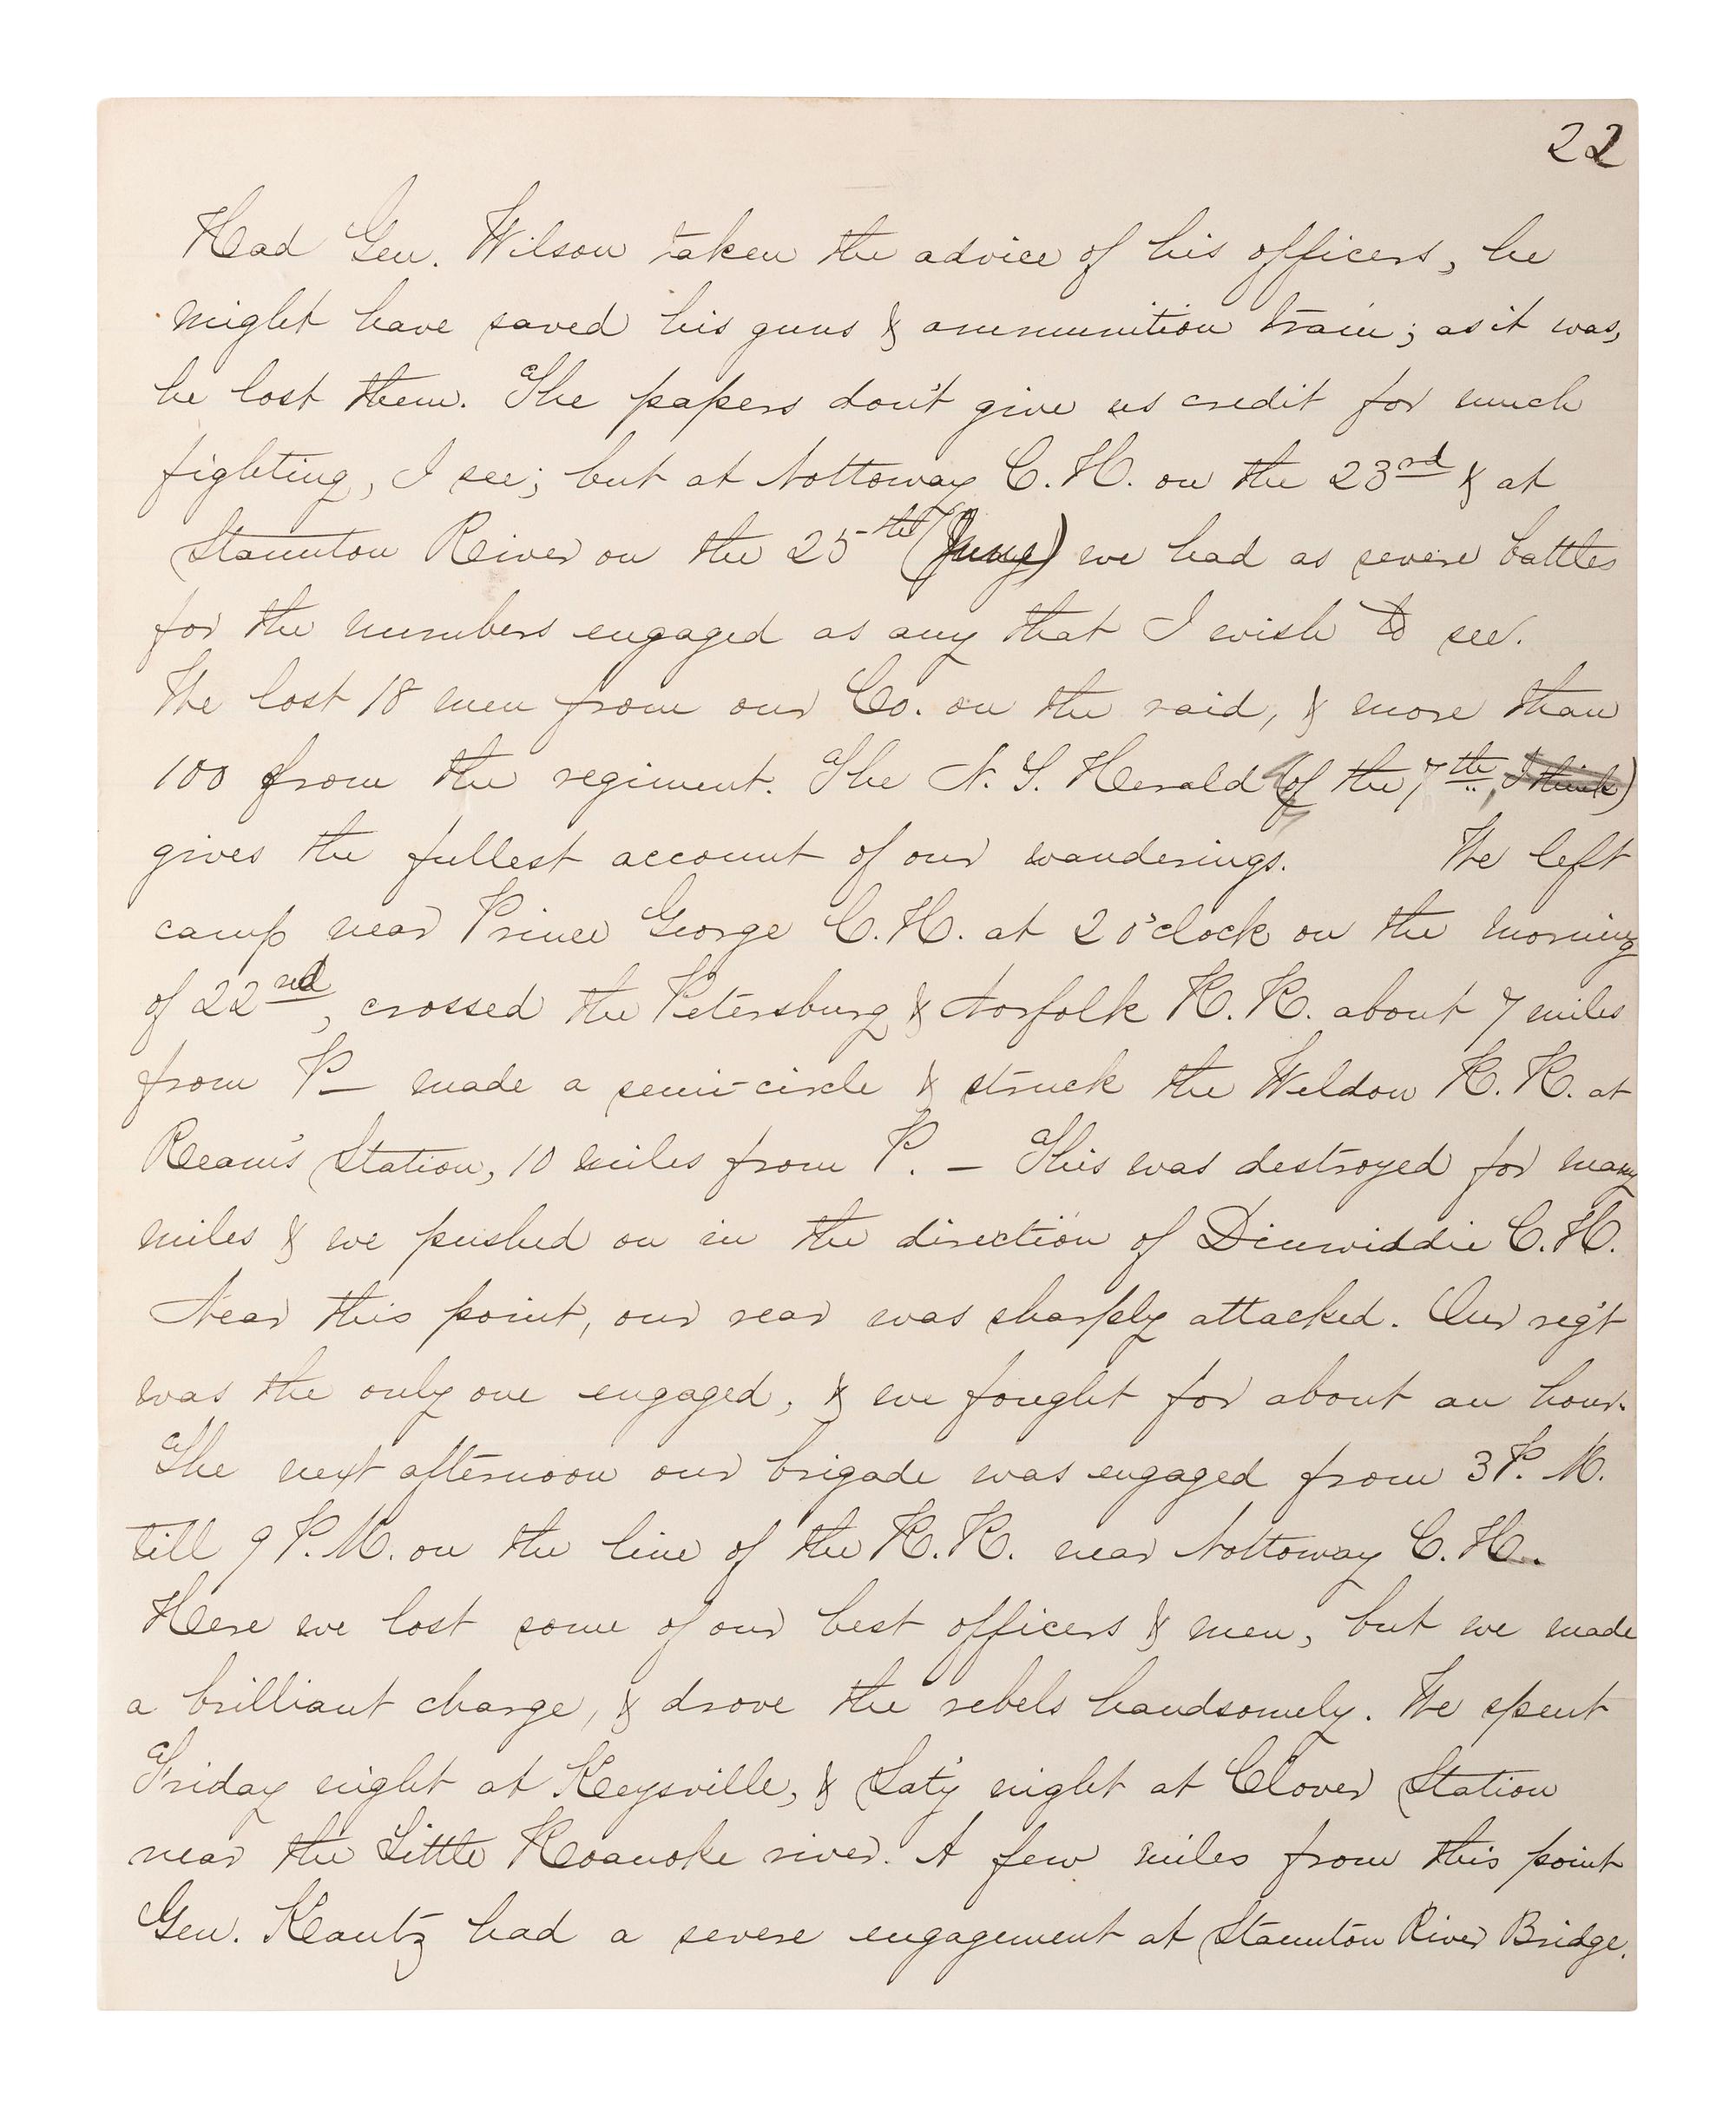 22
Had Gen. Wilson taken the advice of his officers, he
might have saved his guns & ammunition train; as it was,
he lost them. The papers don't give us credit for much
fighting, I see; but at Nottoway C.H. on the 23rd & at
Staunton River on the 25th (June) we had as severe battles
for the numbers engaged as any that I wish to see.
We lost 18 men from our Co. on the raid, & more than
100 from the regiment. The N.Y. Herald (of the 7th, I think)
gives the fullest account of our wanderings. We left
camp near Prince George C.H. at 2 o'clock on the morning
of 22nd, crossed the Petersburg & Norfolk R.R. about 7 miles
from P— made a semi-circle & struck the Weldon R.R. at
Ream's Station, 10 miles from P. — This was destroyed for many
miles & we pushed on in the direction of Dinwiddie C.H.
Near this point, our rear was sharply attacked. Our reg't
was the only one engaged, & we fought for about an hour.
The next afternoon our brigade was engaged from 3 P.M.
till 9 P.M. on the line of the R.R. near Nottoway C.H.
Here we lost some of our best officers & men, but we made
a brilliant charge, & drove the rebels handsomely. We spent
Friday night at Keysville, & Sat'y night at Clover Station
near the Little Roanoke river. A few miles from this point
Gen. Kautz had a severe engagement at Staunton River Bridge.